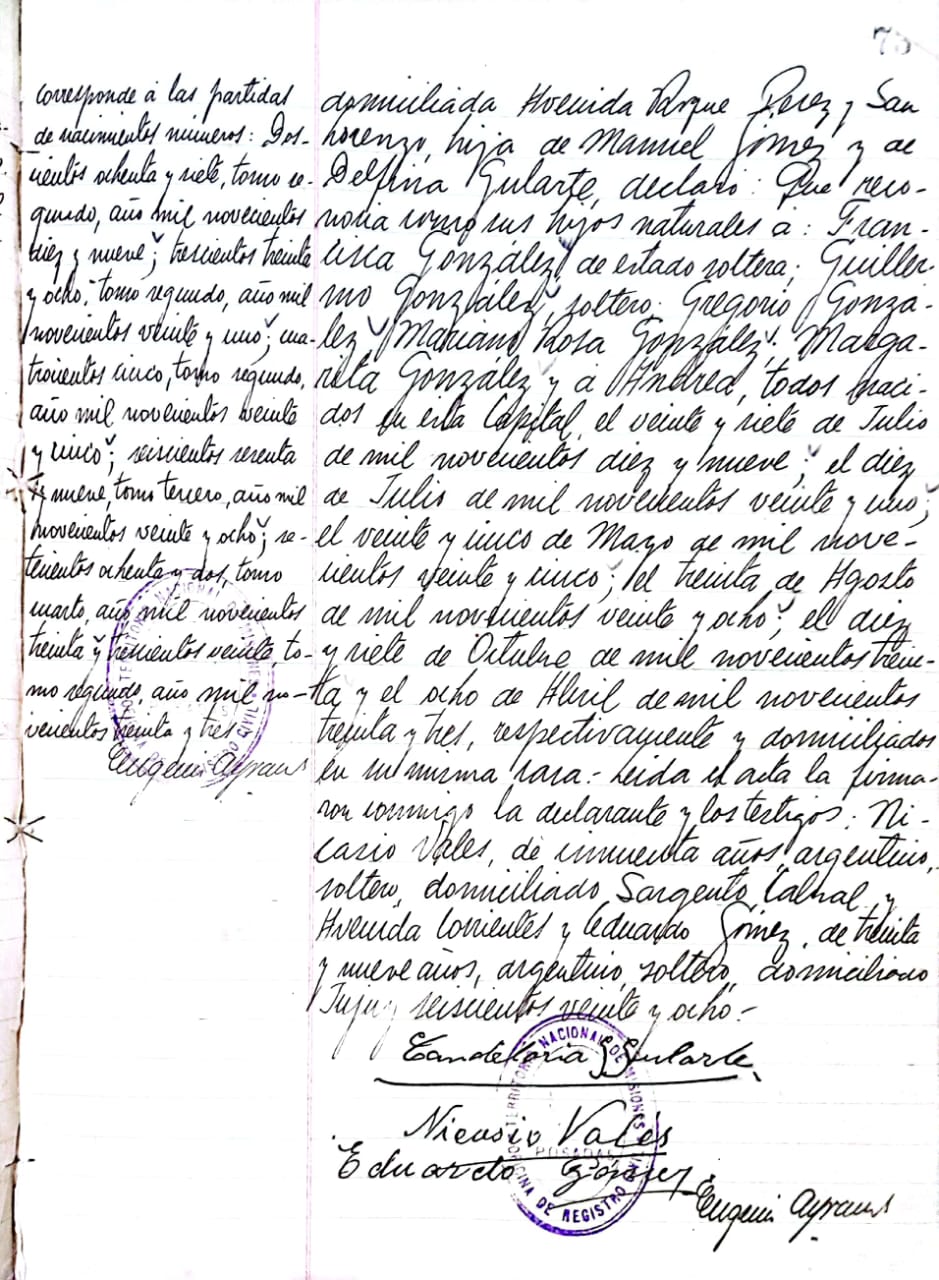 73
corresponde á las partidas
de nacimientos números: Dos-
cientos ochenta y siete, tomo se-
gundo, año mil novecientos
diez y nueve; trescientos treinta
y ocho, tomo segundo, año mil
novecientos veinte y uno; cua-
trocientos cinco, tomo segundo,
año mil novecientos veinte
y cinco; seiscientos sesenta
y nueve, tomo tercero, año mil
novecientos veinte y ocho; se-
tecientos ochenta y dos, tomo
cuarto, año mil novecientos
treinta y trescientos veinte, to-
mo segundo, año mil no-
vecientos treinta y tres
domiciliada Avenida Roque Perez y San
Lorenzo, hija de Manuel Gómez y de
Delfina Gularte, declaró: Que reco-
nocia como sus hijos naturales á: Fran-
cisca González, de estado soltera; Guiller-
mo González, soltero; Gregorio Gonzá-
lez; Mariano Rosa González; Marga-
rita González y á Andrea, todos naci-
dos en esta Capital, el veinte y siete de Julio
de mil novecientos diez y nueve; el diez
de Julio de mil novecientos veinte y uno;
el veinte y cinco de Mayo de mil nove-
cientos veinte y cinco; el treinta de Agosto
de mil novecientos veinte y ocho; el diez
y siete de Octubre de mil novecientos trein-
ta y el ocho de Abril de mil novecientos
treinta y tres, respectivamente y domiciliados
en su misma casa.- Leida el acta la firma-
ron conmigo la declarante y los testigos: Ni-
casio Vales, de cincuenta años, argentino,
soltero, domiciliado Sargento Cabral y
Avenida Corrientes y Eduardo Gómez, de treinta
y nueve años, argentino, soltero, domiciliado
Jujuy seiscientos veinte y ocho.-
Candelaria G Gularte
Nicasio Valés
Eduardo Gómez
Eugenio
TERRITORIO NACIONAL DE MISIONES
POSADAS
OFICINA DE REGISTRO CIVIL